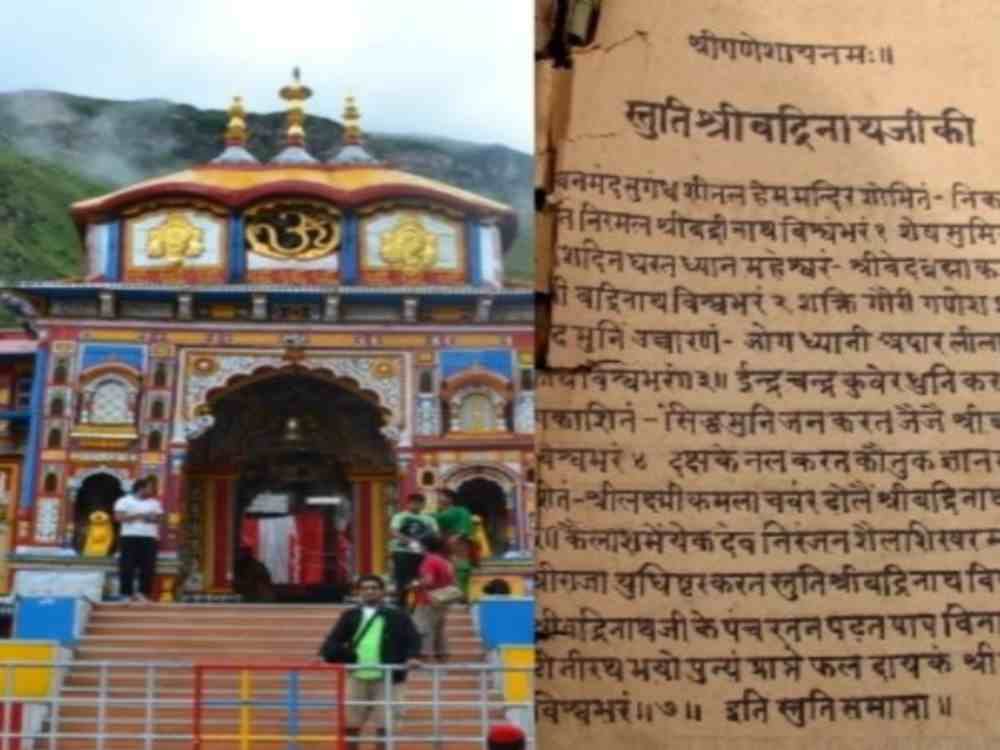 ॐ
श्रीगणेशायनमः॥
स्तुति श्रीबद्रिनाथजीकी
नमंद सुगंध शीतल हेम मन्दिर शोभितं-
निरमल श्रीबद्रीनाथ विश्वभरं १ शेष सुमि
शदिन धरत ध्यान महेश्वरं- श्रीवेद ब्रह्मा क
बद्रिनाथ विश्वभरं २ शक्ति गौरी गणेश
द मुनि उच्चारणं- जोग ध्यानी अपार लीला
विश्वभरं॥३॥ ईन्द्र चन्द्र कुवेर धुनि कर
काशितं - सिद्ध मुनिजन करत जैजै श्री
विश्वभरं ४ करत कौतुक ज्ञान
श्रीलक्ष्मी कमला चवंर ढोलैं श्रीबद्रिनाथ
॥ कैलाशमेंयेक देव निरंजन शैलाशिखर
श्रीराजा युधिष्टर करत स्तुति श्रीबद्रिनाथ वि
श्रीबद्रिनाथजी के पंच रतन पढ़त पाप विना
तीरथ भयो पुन्यं प्राप्ते फल दायकं श्री
विश्वभरं॥७॥ इति स्तुति समाप्ता॥